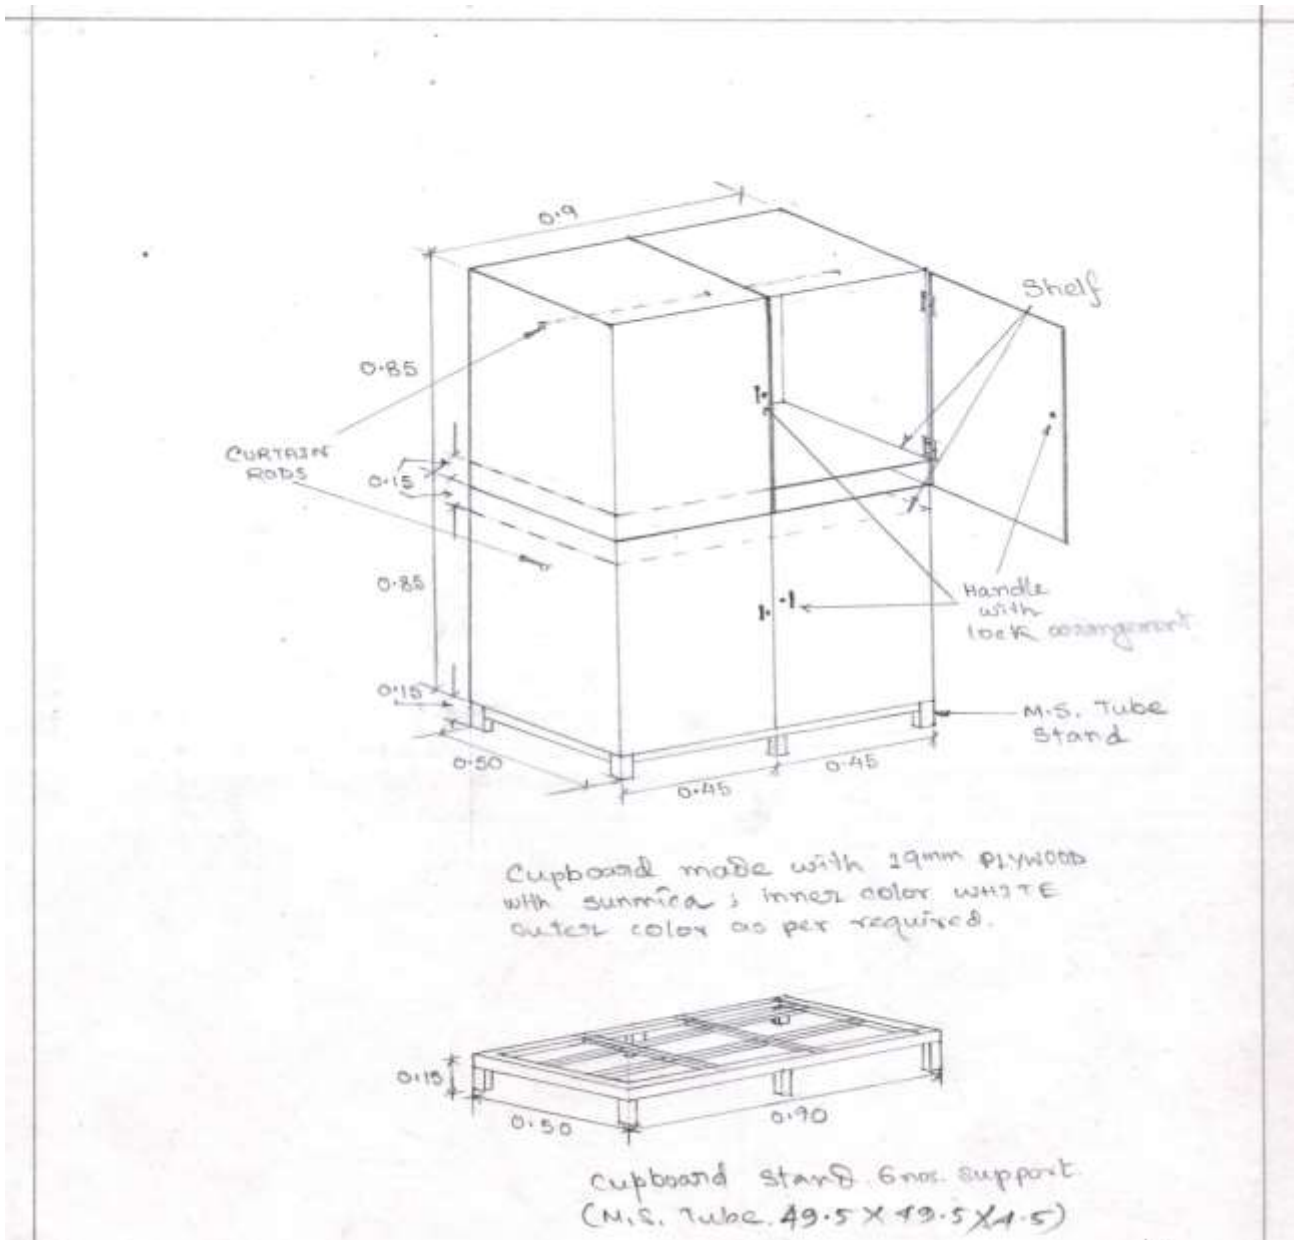 0.9
Shelf
0.85
CURTAIN
RODS
0.15
0.85
Handle
with
lock arrangement
0.15
M.S. Tube
Stand
0.50
0.45
0.45
Cupboard made with 19mm PLYWOOD
with sunmica ; inner color WHITE
outer color as per required.
0.15
0.50
0.90
Cupboard Stand. 6 nos. support
(M.S. Tube. 49.5 X 49.5 X 4.5)